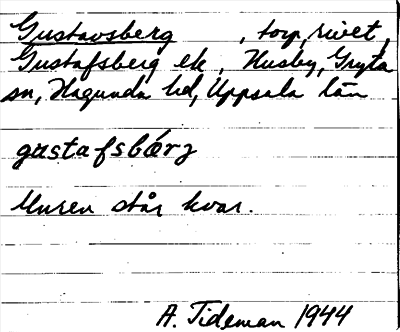 Gustavsberg, torp, rivet,
Gustafsberg ek, Husby, Gryta
sn, Hagunda hd, Uppsala län
gustafsbǽrj
Muren står kvar.
A. Tideman 1944